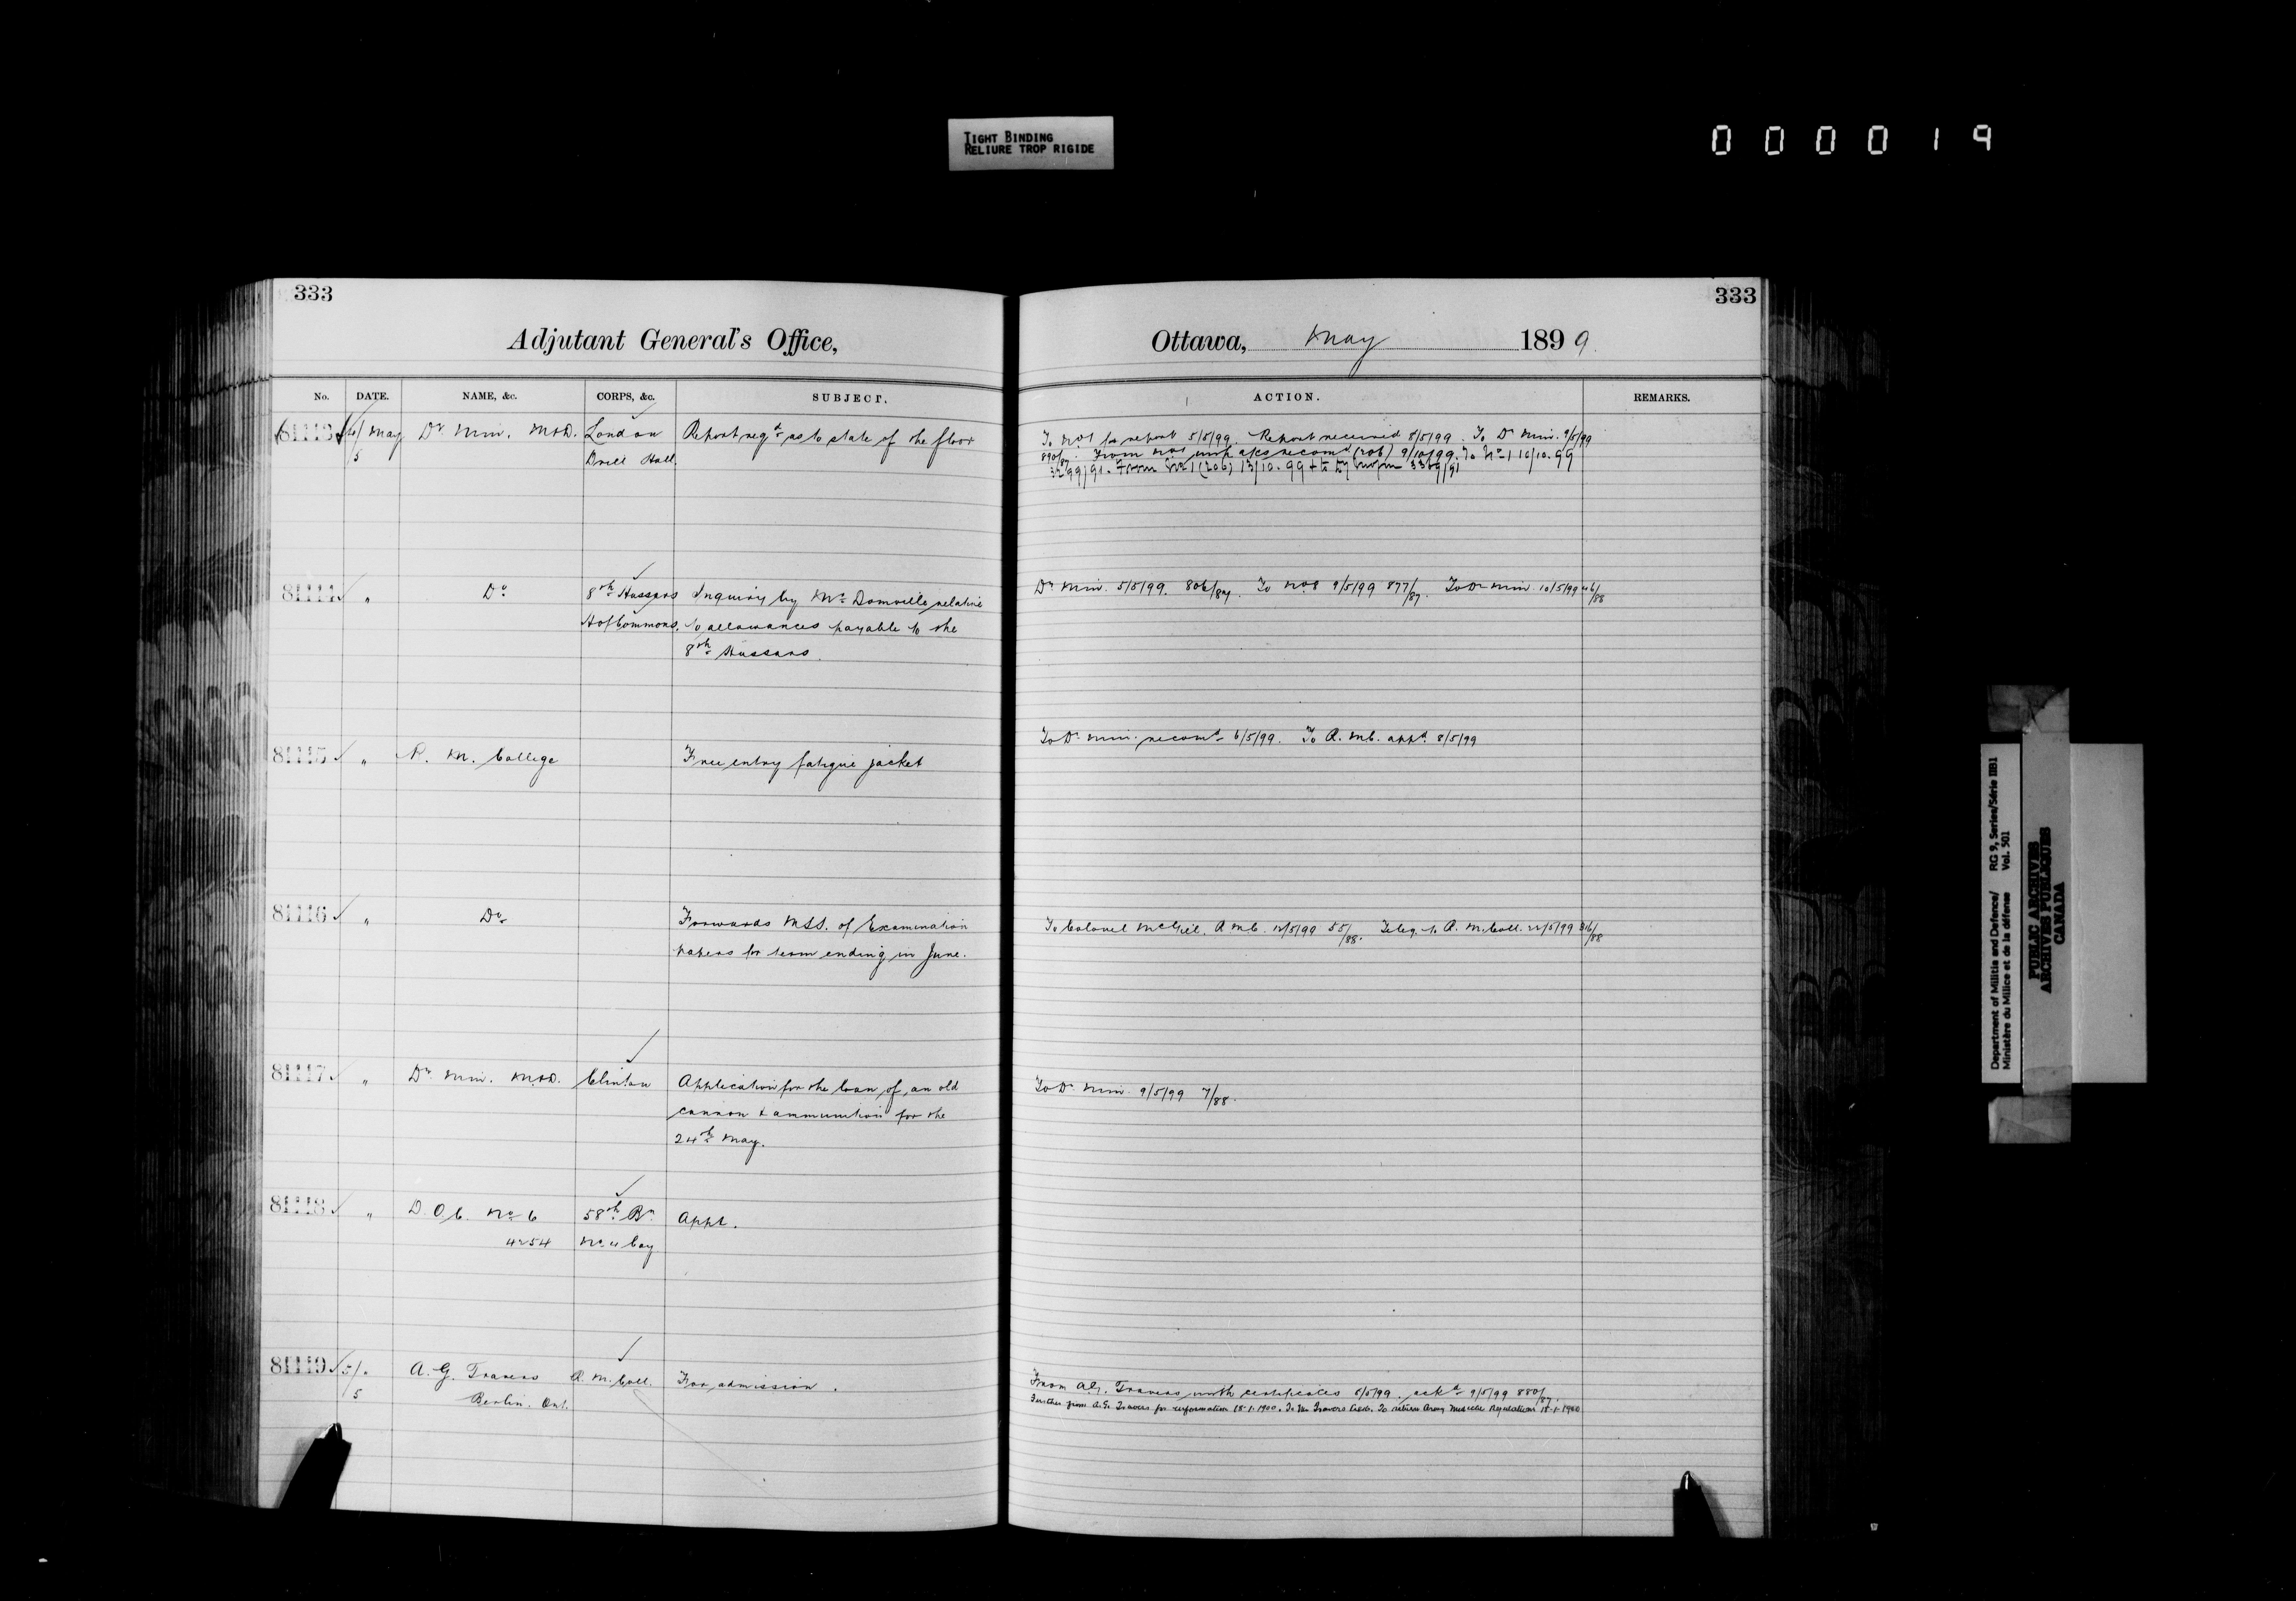 TIGHT BINDING
RELIURE TROP RIGIDE
000019
333
Adjutant General's Office,
No. DATE. NAME, &c. CORPS, &c. SUBJECT.
81113 4/5 May Dr. Min. M&D. London Report reqd as to state of the floor
Drill Hall.
81114 " Do 8th Hussars Inquiry by Mr Domville relative
H of Commons. to allowances payable to the
8th Hussars.
81115 " R. M. College Free entry fatigue jacket
81116 " Do Forwards MSS. of Examination
papers for term ending in June.
81117 " Dr. Min. M&D. Clinton Application for the loan of an old
cannon & ammunition for the
24th May.
81118 " D.O.C. No 6 58th Bn. Appt.
4254 No 4 Coy
81119 5/5 " A. G. Travers R. M. Coll. For admission.
Berlin. Ont.
333
Ottawa, May 1899.
ACTION. REMARKS.
To No 1 for report 5/5/99. Report received 8/5/99. To Dr Min. 9/5/99
890/87. From No 1 with recomd (206) 9/10/99. To No 1 10/10.99
3299/91. From No 1 (206) 13/10.99
Dr Min. 5/5/99. 806/87. To No 8 9/5/99 877/87. To Dr Min. 10/5/99 46/88
To Dr Min. recomd 6/5/99. To R. M.C. appd. 8/5/99
To Colonel McGill. R M C. 12/5/99 55/88. Teleg. to R. M. Coll. 22/5/99 316/88
To Dr Min. 9/5/99 7/88.
From A.G. Travers with certificates 8/5/99. ackd 9/5/99 880/87.
Further from A.G. Travers for information 15.1.1900. To Mr Travers To return Army Medical Regulations 18.1.1900
Department of Militia and Defence/ RG 9, Series/Série IIB1
Ministère du Milice et de la défense Vol. 501
PUBLIC ARCHIVES
ARCHIVES PUBLIQUES
CANADA